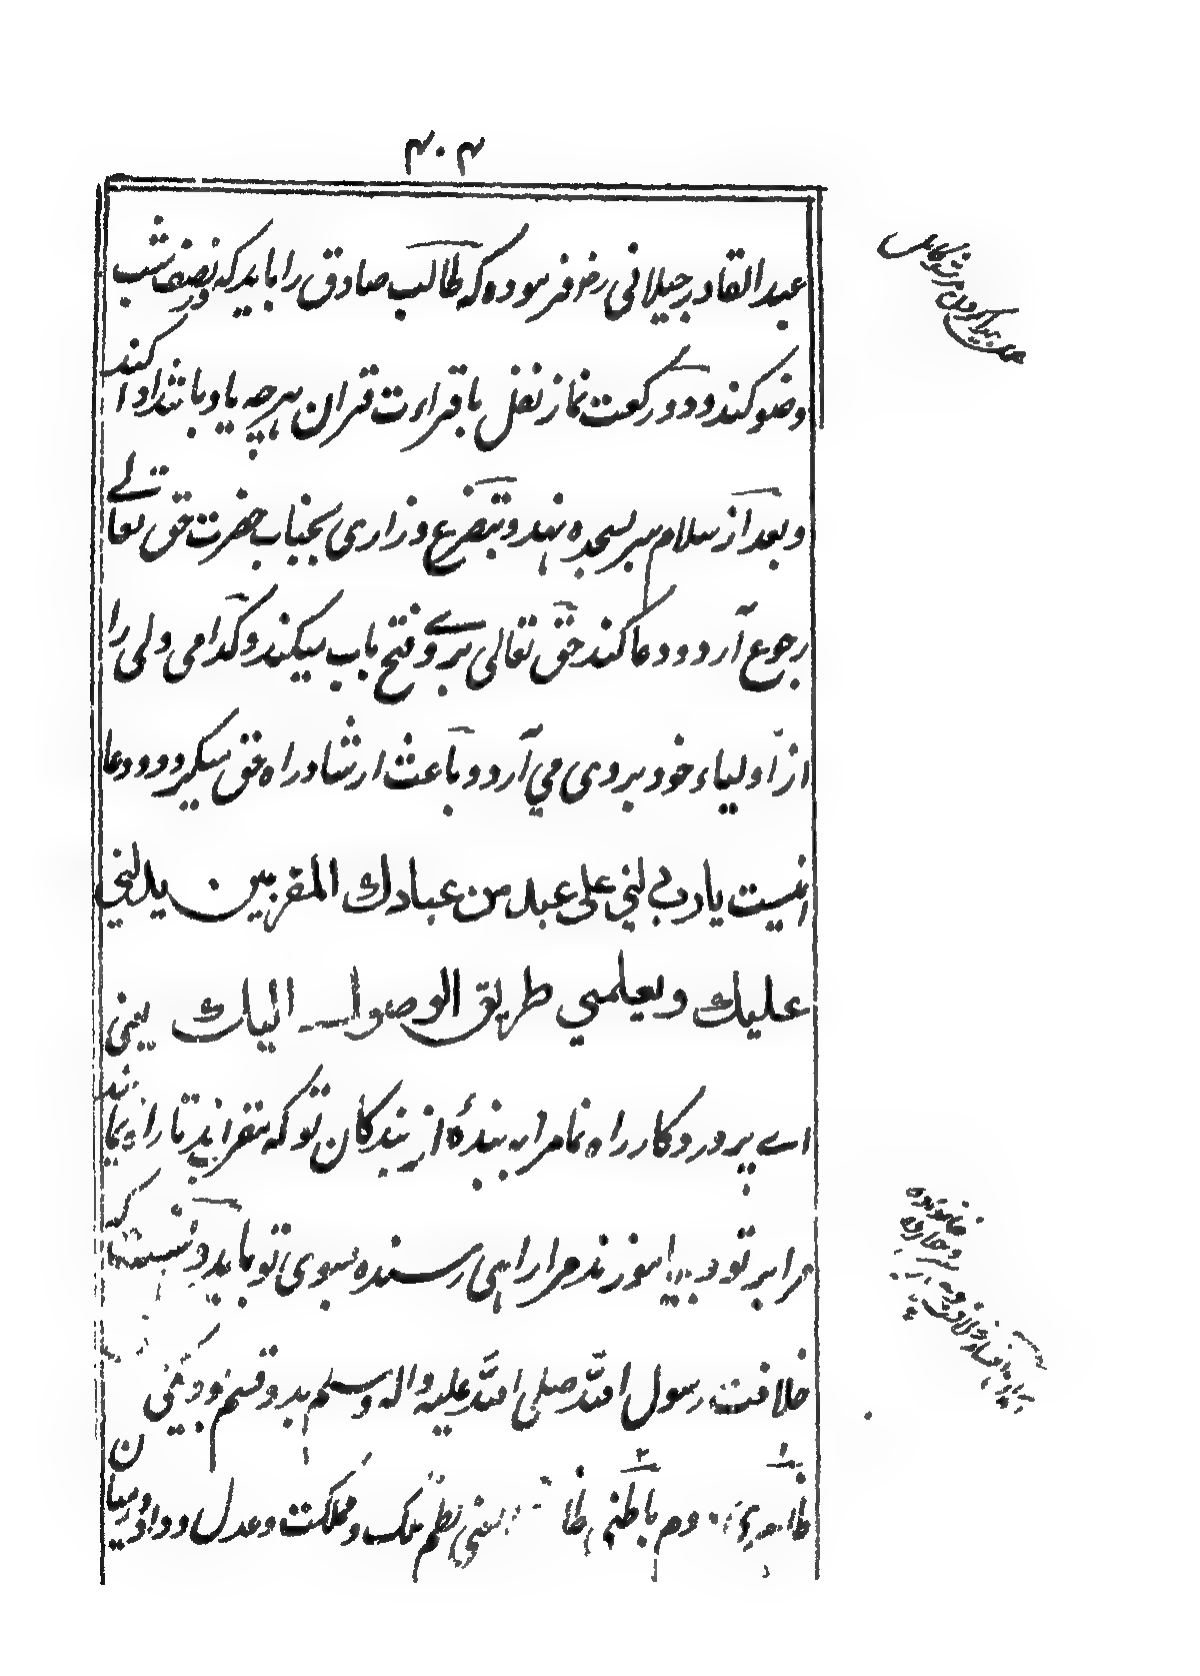 ۴۰۴
عبدالقادر جیلانی رضـ فرموده که طالب صادق را باید که در نصف شب
وضو کند و دو رکعت نماز نفل با قراءت قران هرچه یاد باشد ادا کند
و بعد از سلام سر بسجده نهد و بتضرع و زاری بجناب حضرت حق تعالے
رجوع آرد و دعا کند حق تعالی برے و فتح باب میکند و کدامی ولی را
از اولیاء خود بروی می آرد و باعث ارشاد راه حق میگیرد و دعا
اینست یا رب دلنی علی عبد من عبادك المقربین یدلنی
علیك و یعلمنی طریق الوصول الیك یعنی
اے پروردگار راه نما مرا به بندهٔ از بندگان تو که مقرب اند تا راه نماید
مرا بر تو و بیاموزند مرا راهی رسنده بسوی تو باید دانست که
خلافت رسول الله صلی الله علیه واله وسلم بدو قسم بود یکی
ظاهری دوم باطنی ظا یعنی نظم ملک و مملکت و عدل و داد درمیان
پیدا کردن مرشد کامل